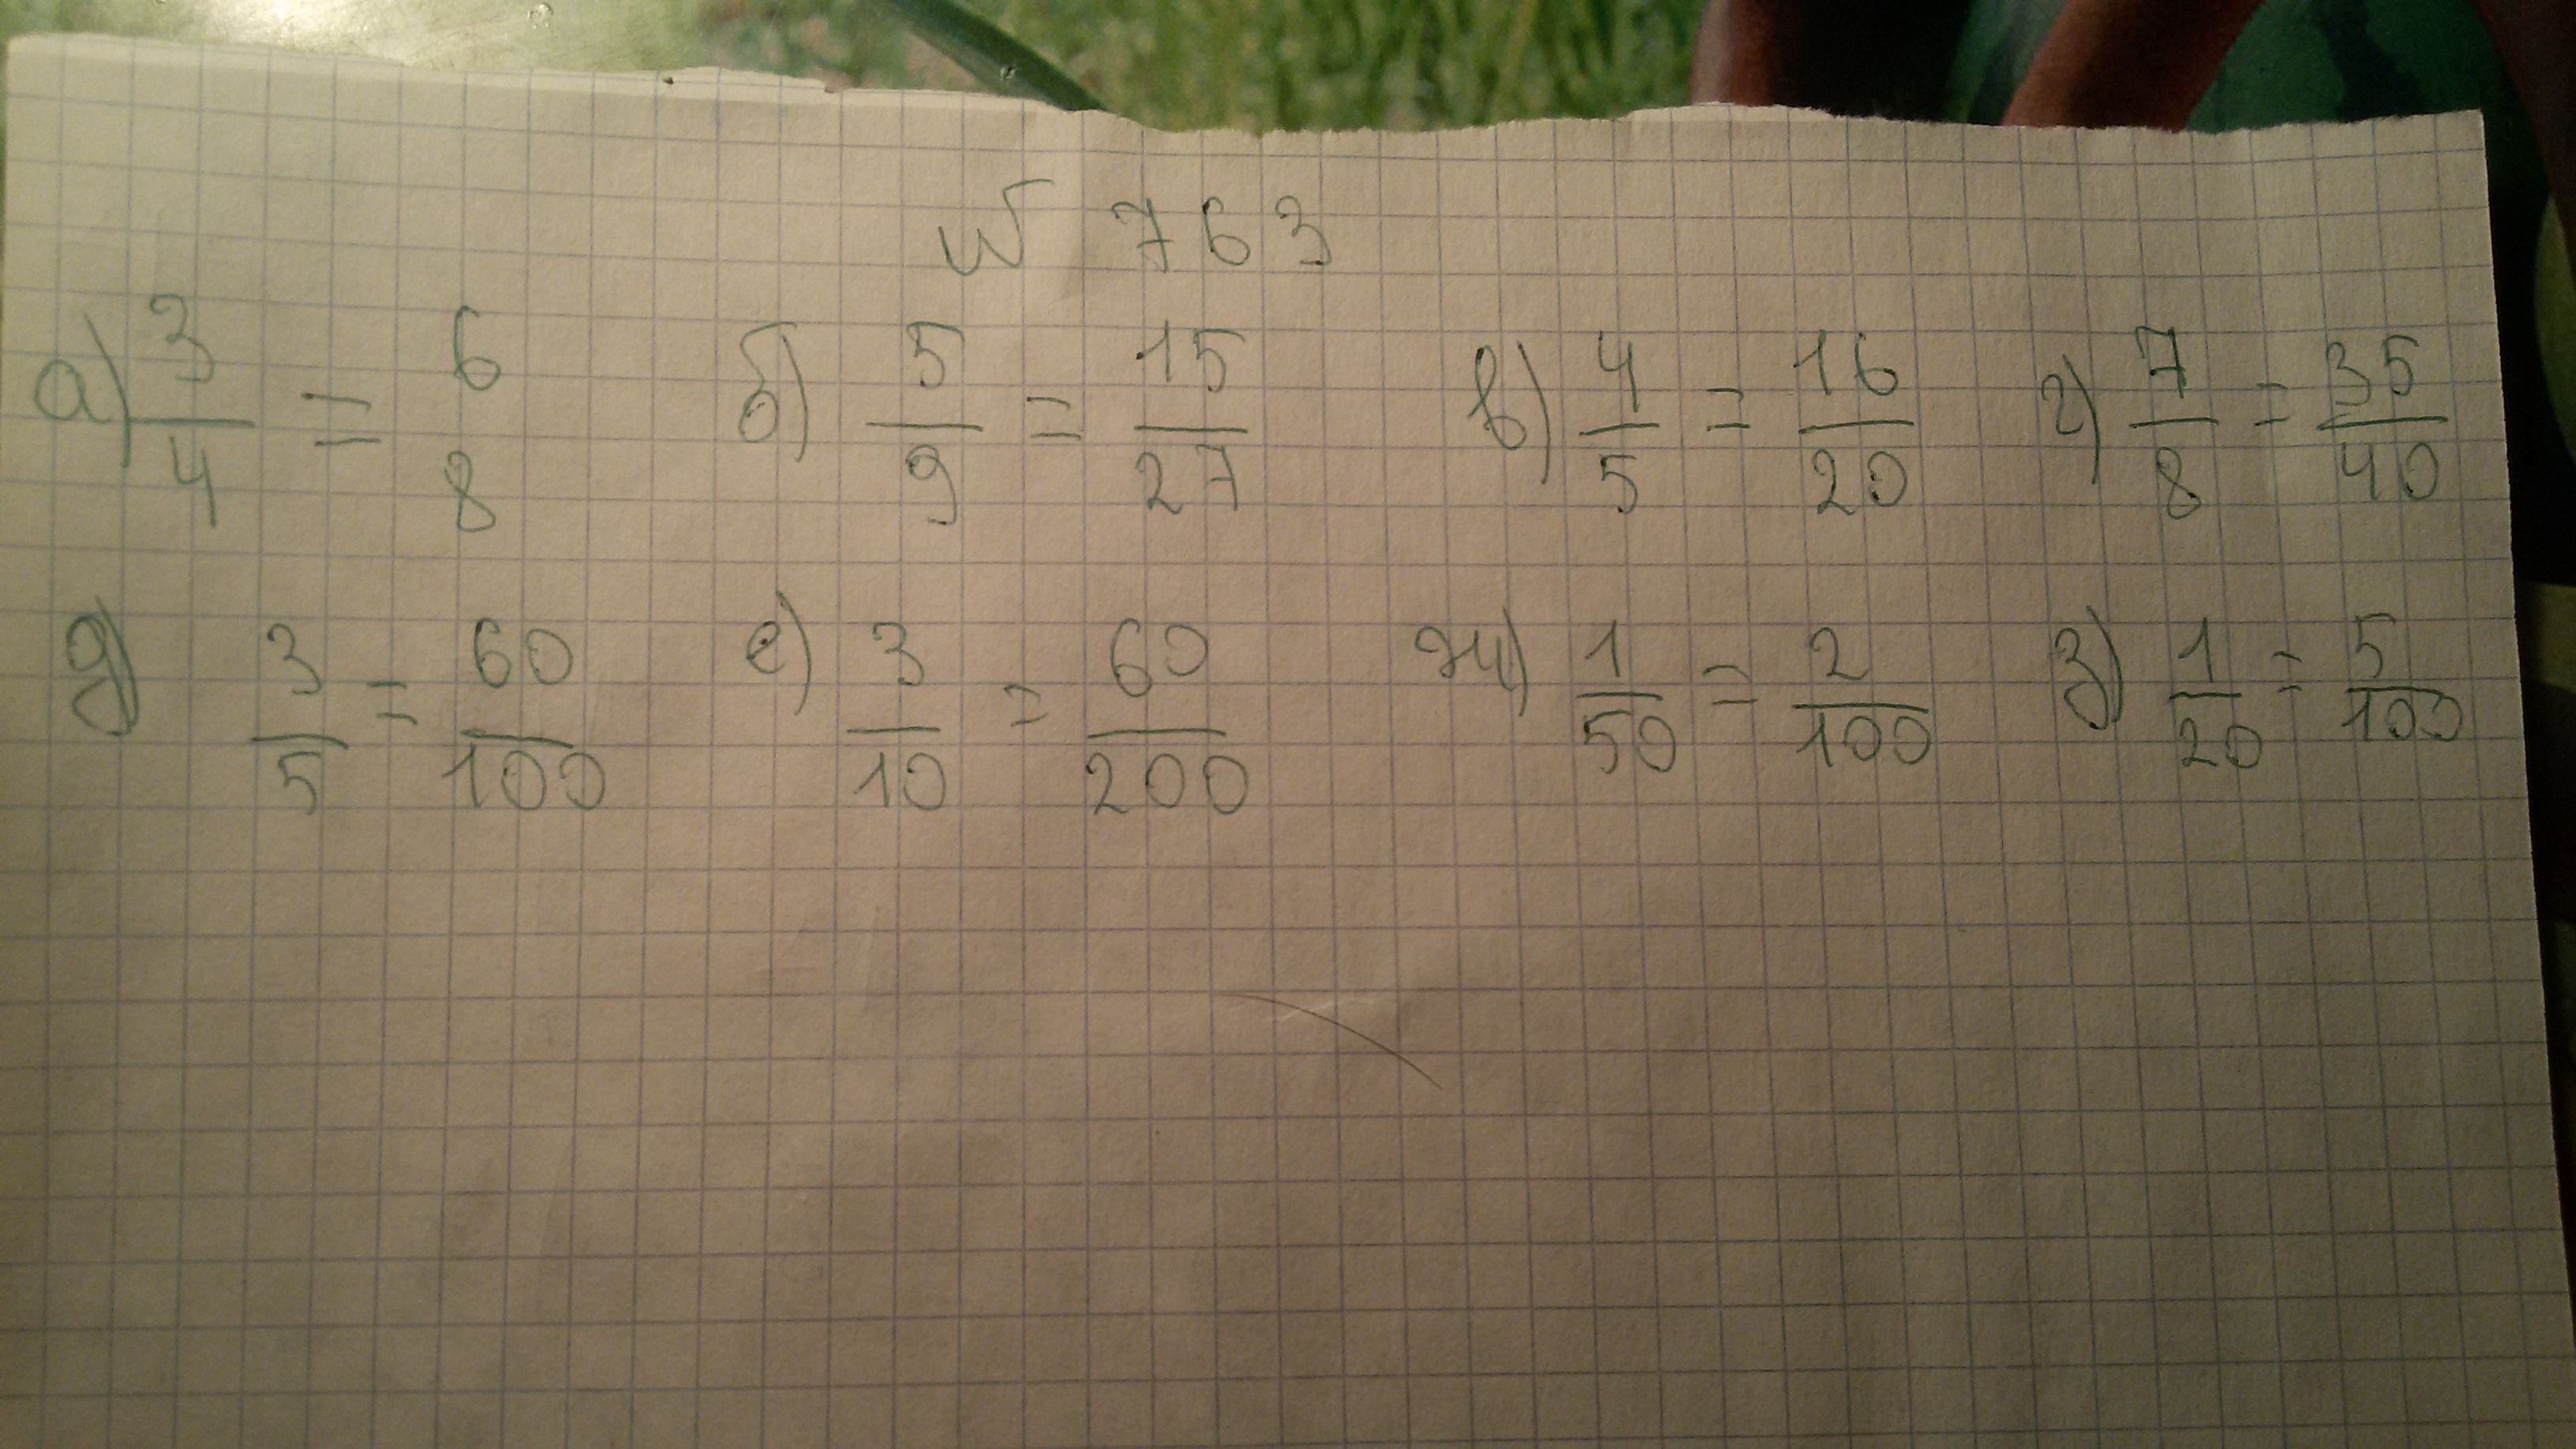 № 763
а) 3/4 = 6 8 б) 5/9 = 15/27 в) 4/5 = 16/20 г) 7/8 = 35/40
д) 3/5 = 60/100 е) 3/10 = 60/200 ж) 1/50 = 2/100 з) 1/20 = 5/100